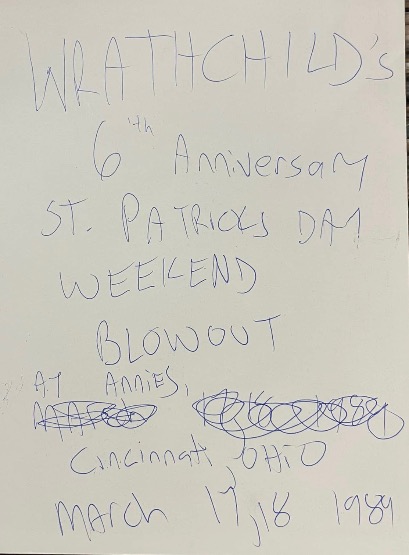 WRATHCHILD's
6th Anniversary
ST. PATRICKS DAY
WEEKEND
BLOWOUT
AT ANNIES,
Cincinnati, OHIO
MARCH 17,18 1989